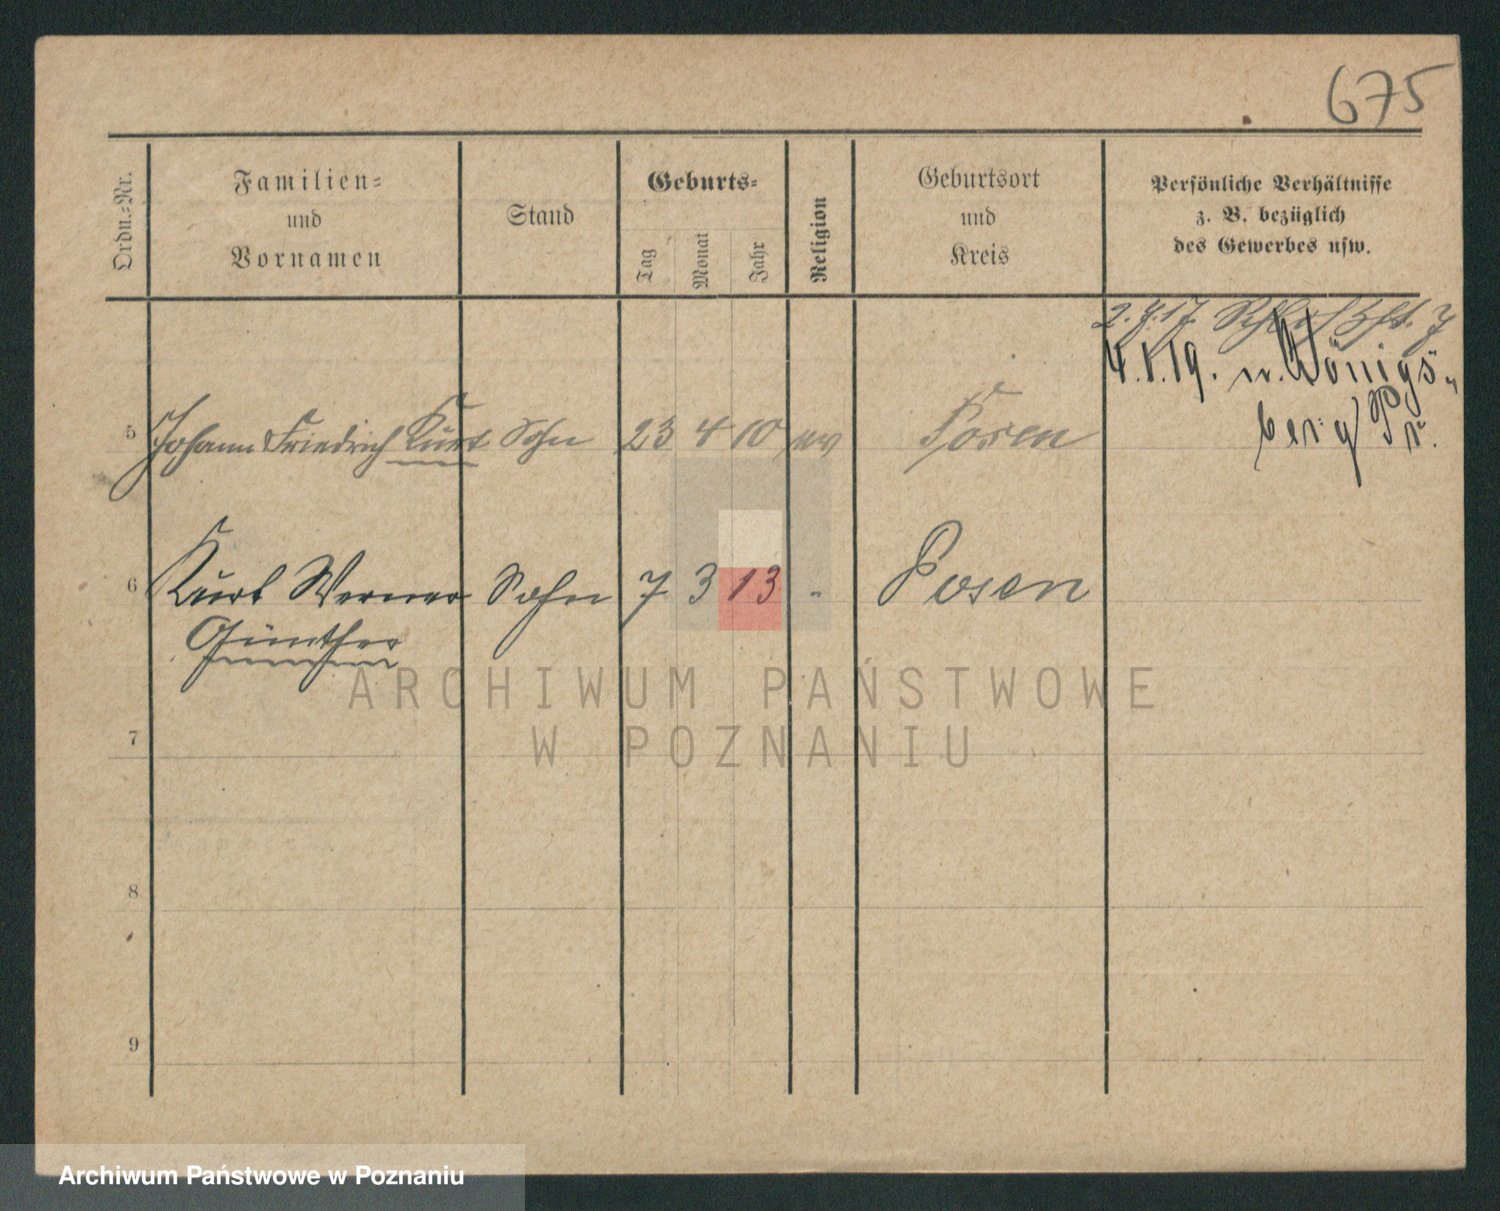 675
Ordn.-Nr.
Familien-
und
Vornamen
Stand
Geburts-
Tag
Monat
Jahr
Religion
Geburtsort
und
Kreis
Persönliche Verhältnisse
z. B. bezüglich
des Gewerbes usw.
4.1.19. n. Königs-
berg Pr.
5 Johann Friedrich Kurt Sohn 23 4 10 ev Posen
6 Kurt Werner Sohn 7 3 13 " Posen
Günther
ARCHIWUM PAŃSTWOWE
W POZNANIU
7
8
9
Archiwum Państwowe w Poznaniu